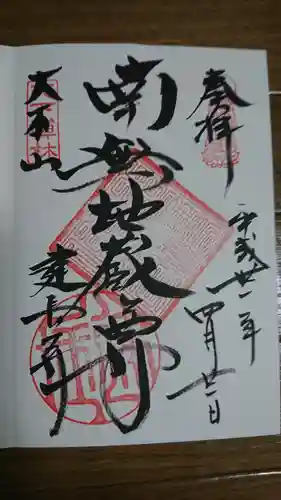 奉拝
平成廿一年四月廿一日
南無地蔵尊
大本山
建長寺